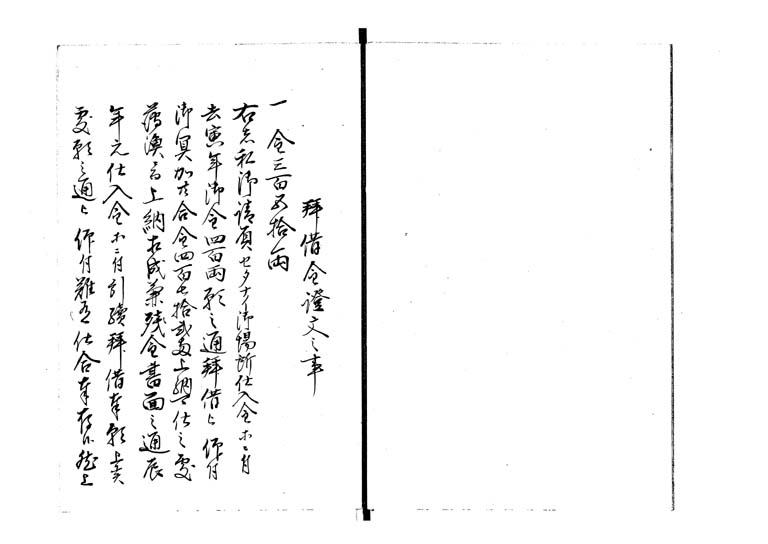 拝借金證文之事
一金三百五拾両
右者私御請負セタナイ御場所仕入金ニ付
去寅年御金四百両願之通拝借被仰付
御冥加共合金四百七拾弐両上納可仕之處
薄漁ニ而上納相成兼残金書面之通辰
年元仕入金ニ付引續拝借奉願上候
處願之通被仰付難有仕合奉存候然上